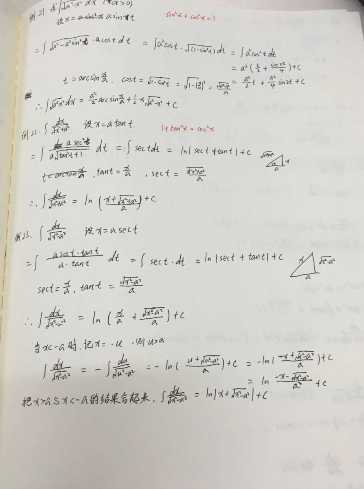 例21 求∫√(a²-x²) dx (a>0)
设x = a sin t  sin²x + cos²x = 1
= ∫√(a²-a²sin²t) · a cos t dt = ∫a²cost · √(1-sin²t) dt = ∫a²cos²t dt
= a²(t/2 + sin2t/4) + C
t = arcsin x/a, cost = √(1-sin²t) = √(1-(x/a)²) = √(a²-x²)/a = a²/2 t + a²/4 sin2t + C
∴ ∫√(a²-x²) dx = a²/2 arcsin x/a + 1/2 x√(a²-x²) + C
例22. ∫dx/√(x²+a²) 设x = a tan t  1+tan²x = sec²x
= ∫ a sec²t / a√(tan²t+1) dt = ∫ sect dt = ln|sect + tant| + C
tant = x/a, sect = √(x²+a²)/a
∴ ∫dx/√(x²+a²) = ln(x+√(x²+a²)/a) + C
例23. ∫dx/√(x²-a²) 设x = a sect
= ∫ a sect·tant / a·tant dt = ∫sect·dt = ln|sect + tant| + C
sect = x/a, tant = √(x²-a²)/a
∴ ∫dx/√(x²-a²) = ln(x/a + √(x²-a²)/a) + C
当x<-a时, 把x = -u, 则u>a
∫dx/√(x²-a²) = -∫du/√(u²-a²) = -ln(u+√(u²-a²)/a) + C = -ln(-x+√(x²-a²)/a) + C
= ln -x-√(x²-a²)/a + C
把x>a与x<-a的结果合起来, ∫dx/√(x²-a²) = ln|x+√(x²-a²)| + C